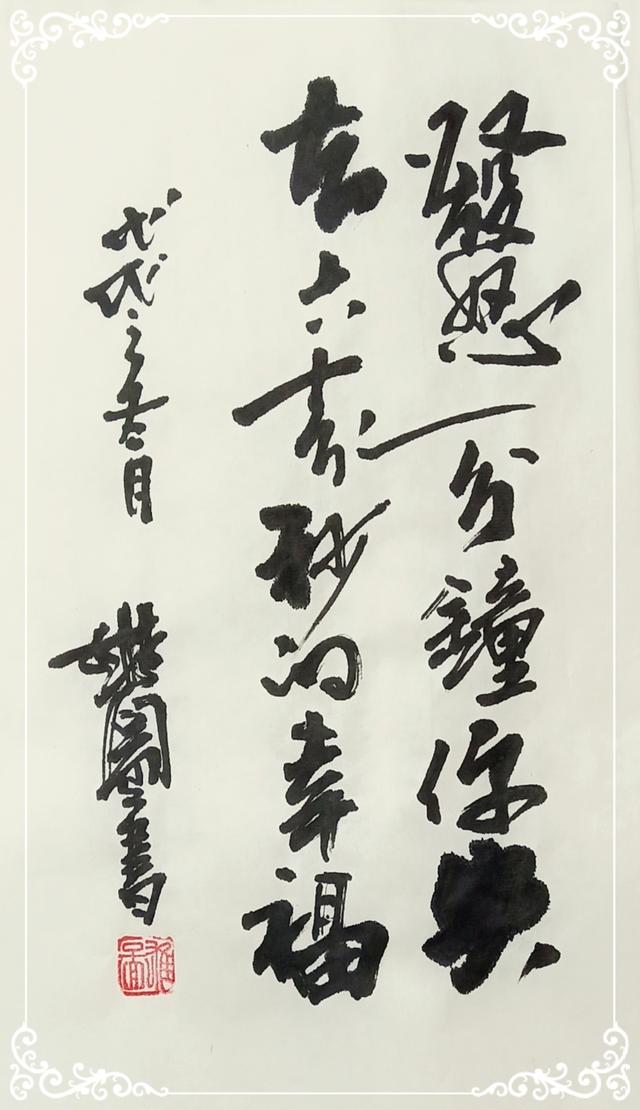 發怒一分鐘你失
去六十秒的幸福
戊戌之月
書